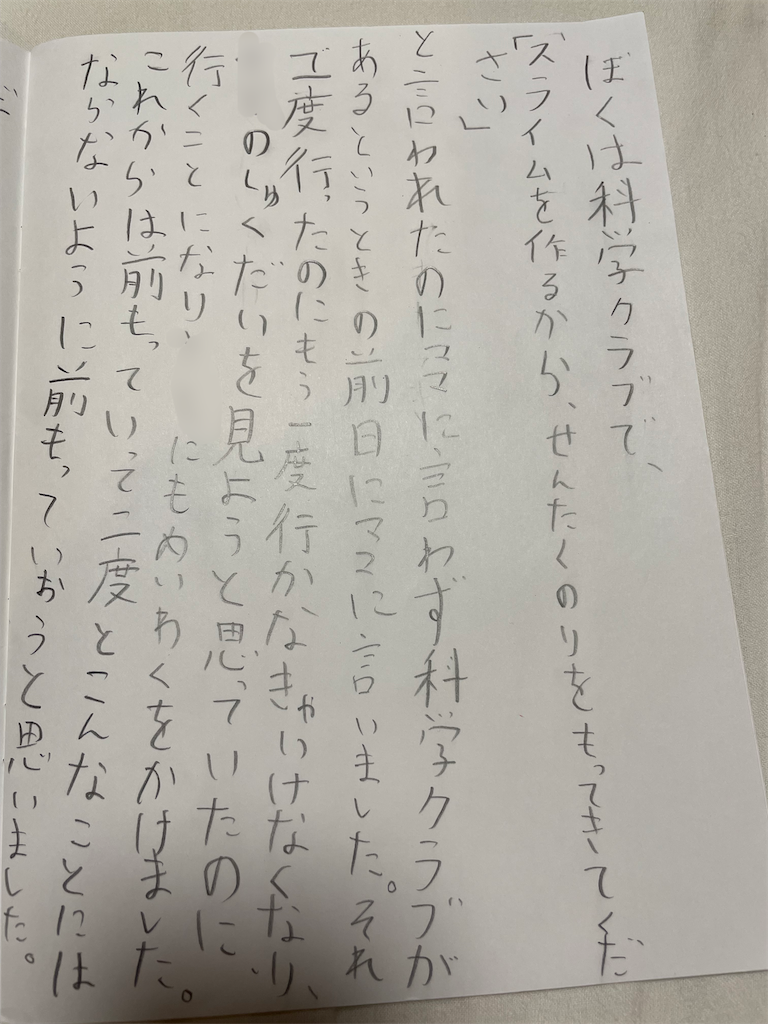 ぼくは科学クラブで、
「スライムを作るから、せんたくのりをもってきてくだ
さい」
と言われたのにママに言わず科学クラブが
あるというときの前日にママに言いました。それ
で一度行ったのにもう一度行かなきゃいけなくなり、
のしゅくだいを見ようと思っていたのに、
行くことになり、にもめいわくをかけました。
これからは前もっていって二度とこんなことには
ならないように前もっていおうと思いました。